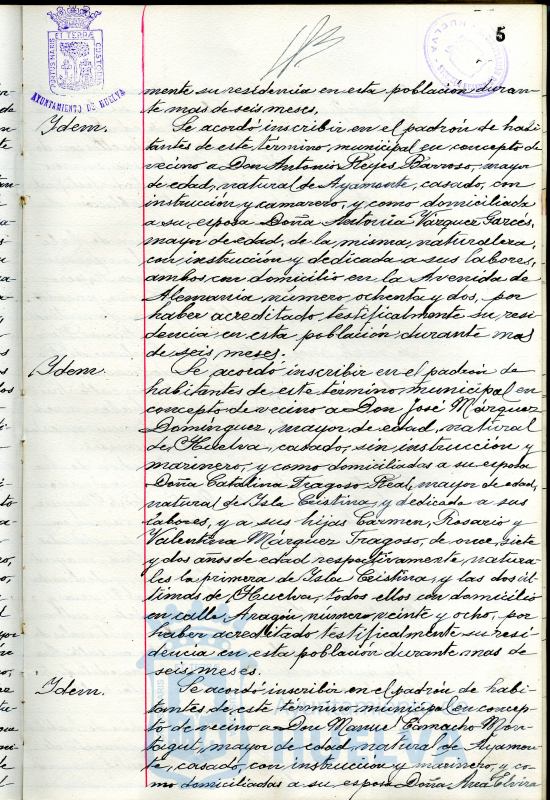 5
PORTUS MARIS ET TERRÆ CUSTODIA
AYUNTAMIENTO DE HUELVA
mente su residencia en esta población duran-
te mas de seis meses.
Ydem.
Se acordó inscribir en el padrón de habi-
tantes de este término municipal en concepto de
vecino a Don Antonio Reyes Barroso, mayor
de edad, natural de Ayamonte, casado, con
instrucción y camarero, y como domiciliada
a su esposa Doña Antonia Vázquez Garcés,
mayor de edad, de la misma naturaleza,
con instrucción y dedicada a sus labores,
ambos con domicilio en la Avenida de
Alemania número ochenta y dos, por
haber acreditado testificalmente su resi-
dencia en esta población durante mas
de seis meses.
Ydem.
Se acordó inscribir en el padrón de
habitantes de este término municipal en
concepto de vecino a Don José Márquez
Domínguez, mayor de edad, natural
de Huelva, casado, sin instrucción y
marinero, y como domiciliadas a su esposa
Doña Catalina Fragoso Real, mayor de edad,
natural de Isla Cristina, y dedicada a sus
labores, y a sus hijas Carmen, Rosario y
Valentina Márquez Fragoso, de once, siete
y dos años de edad respectivamente, natura-
les la primera de Isla Cristina, y las dos úl-
timas de Huelva, todos ellos con domicilio
en calle Aragón número veinte y ocho, por
haber acreditado testificalmente su resi-
dencia en esta población durante mas de
seis meses.
Ydem.
Se acordó inscribir en el padrón de habi-
tantes de este término municipal en concep-
to de vecino a Don Manuel Camacho Mon-
tagut, mayor de edad, natural de Ayamon-
te, casado, con instrucción y marinero, y co-
mo domiciliadas a su esposa Doña Ana Elvira